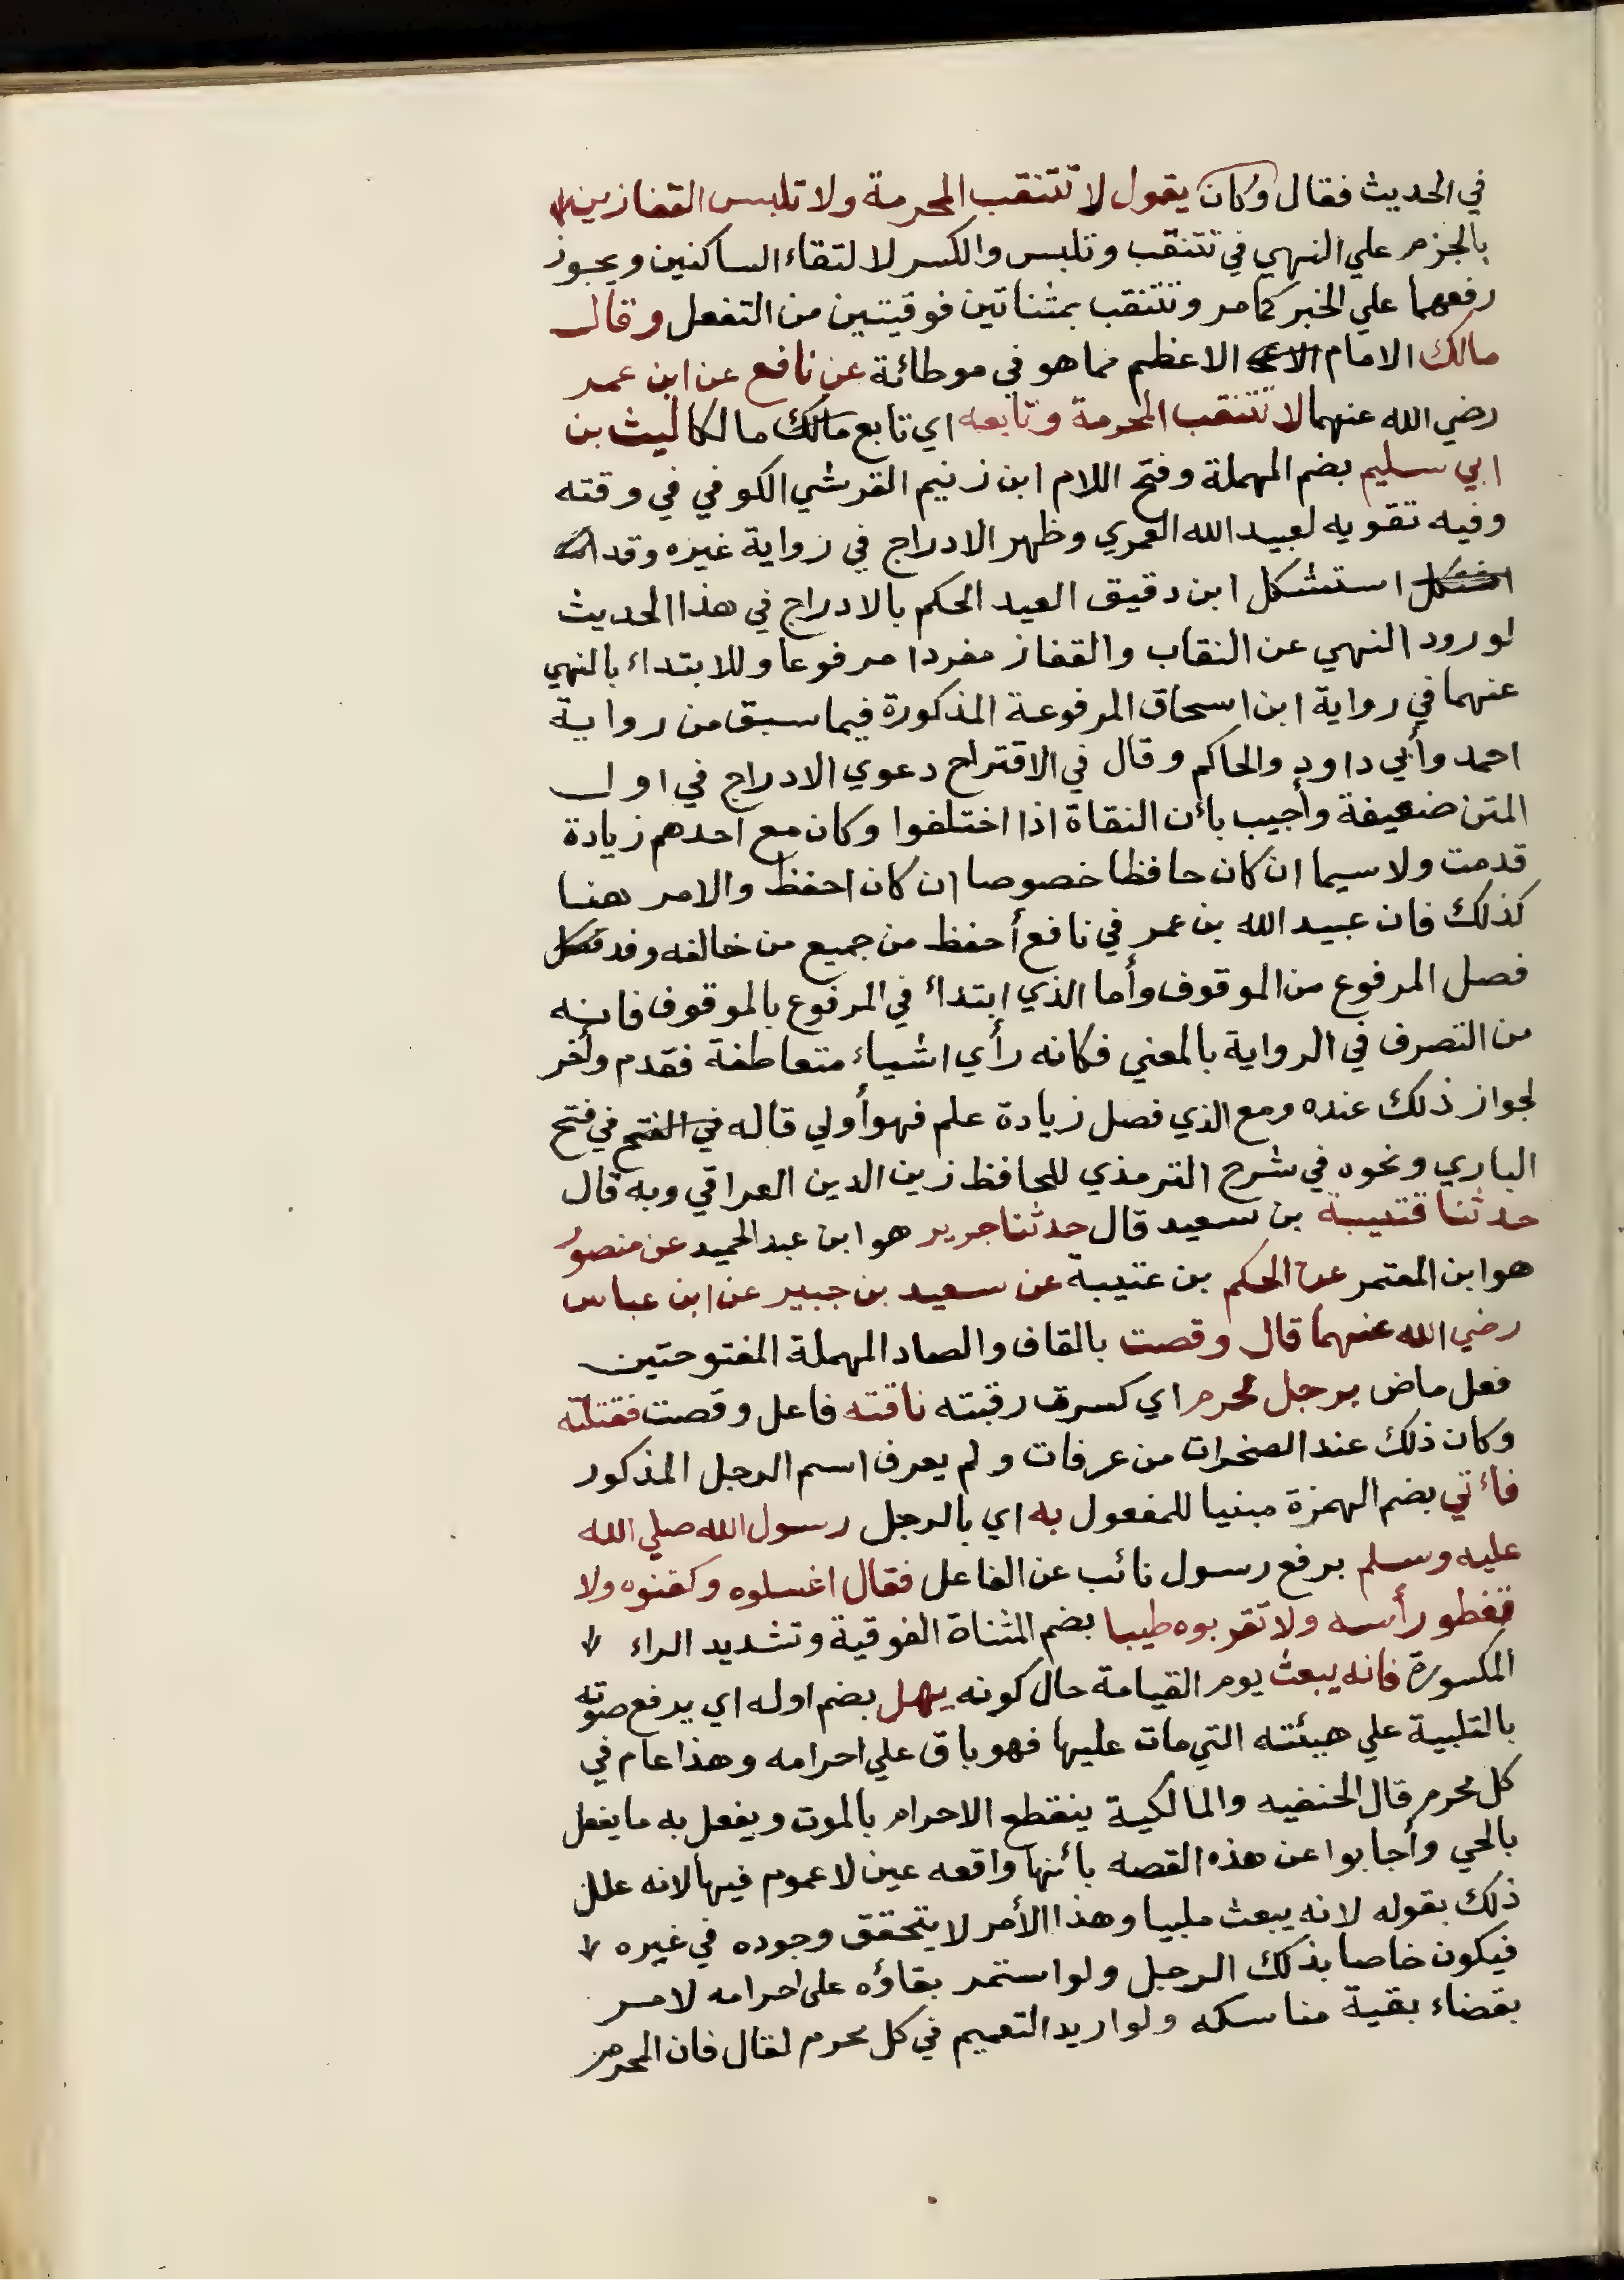 في الحديث فقال وكان يقول لا تتنقب المحرمة ولا تلبس القفازين
بالجزم علي النهي في تتنقب وتلبس والكسر لالتقاء الساكنين ويجوز
رفعهما علي الخبر كما مر وتتنقب بمثناتين فوقيتين من التفعل وقال
مالك الامام الاعظم مما هو في موطائة عن نافع عن ابن عمر
رضي الله عنهما لا تتنقب المحرمة وتابعه اي تابع مالك مالكا ليث بن
ابي سليم بضم المهملة وفتح اللام ابن زنيم القرشي الكوفي في وقته
وفيه تقويه لعبيد الله العمري وظهر الادراج في رواية غيره وقد
استشكل ابن دقيق العيد الحكم بالادراج في هذا الحديث
لورود النهي عن النقاب والقفاز مفردا مرفوعا وللابتداء بالنهي
عنهما في رواية ابن اسحاق المرفوعة المذكورة فيما سبق من رواية
احمد وأبي داود والحاكم وقال في الاقتراح دعوي الادراج في اول
المتن ضعيفة وأجيب بأن النقاة اذا اختلفوا وكان مع أحدهم زيادة
قدمت ولا سيما ان كان حافظا خصوصا ان كان احفظ والامر هنا
كذلك فان عبيد الله بن عمر في نافع أحفظ من جميع من خالفه وقد
فصل المرفوع من الموقوف وأما الذي ابتداء في المرفوع بالموقوف فانه
من التصرف في الرواية بالمعني فكانه رأي اشياء متعاطفة فقدم وأخر
لجواز ذلك عنده ومع الذي فصل زيادة علم فهو أولي قاله في الفتح في فتح
الباري ونحوه في شرح الترمذي للحافظ زين الدين العراقي وبه قال
حدثنا قتيبة بن سعيد قال حدثنا جرير هو ابن عبد الحميد عن منصور
هو ابن المعتمر عن الحكم بن عتيبة عن سعيد بن جبير عن ابن عباس
رضي الله عنهما قال وقصت بالقاف والصاد المهملة المفتوحتين
فعل ماض برجل محرم اي كسرت رقبته ناقته فاعل وقصت فقتلته
وكان ذلك عند الصخرات من عرفات ولم يعرف اسم الرجل المذكور
فأتي بضم الهمزة مبنيا للمفعول به اي بالرجل رسول الله صلي الله
عليه وسلم برفع رسول نائب عن الفاعل فقال اغسلوه وكفنوه ولا
تغطو رأسه ولا تقربوه طيبا بضم المثناة الفوقية وتشديد الراء
المكسورة فانه يبعث يوم القيامة حال كونه يهل بضم اوله اي يرفع صوته
بالتلبية علي هيئته التي مات عليها فهو باق علي احرامه وهذا عام في
كل محرم قال الحنفيه والمالكية ينقطع الاحرام بالموت ويفعل به ما يفعل
بالحي وأجابوا عن هذه القصه بأنها واقعه عين لا عموم فيها لانه علل
ذلك بقوله لانه يبعث ملبيا وهذا الأمر لا يتحقق وجوده في غيره
فيكون خاصا بذلك الرجل ولو استمر بقاؤه على احرامه لامر
بقضاء بقية مناسكه ولو اريد التعميم في كل محرم لقال فان المحرم